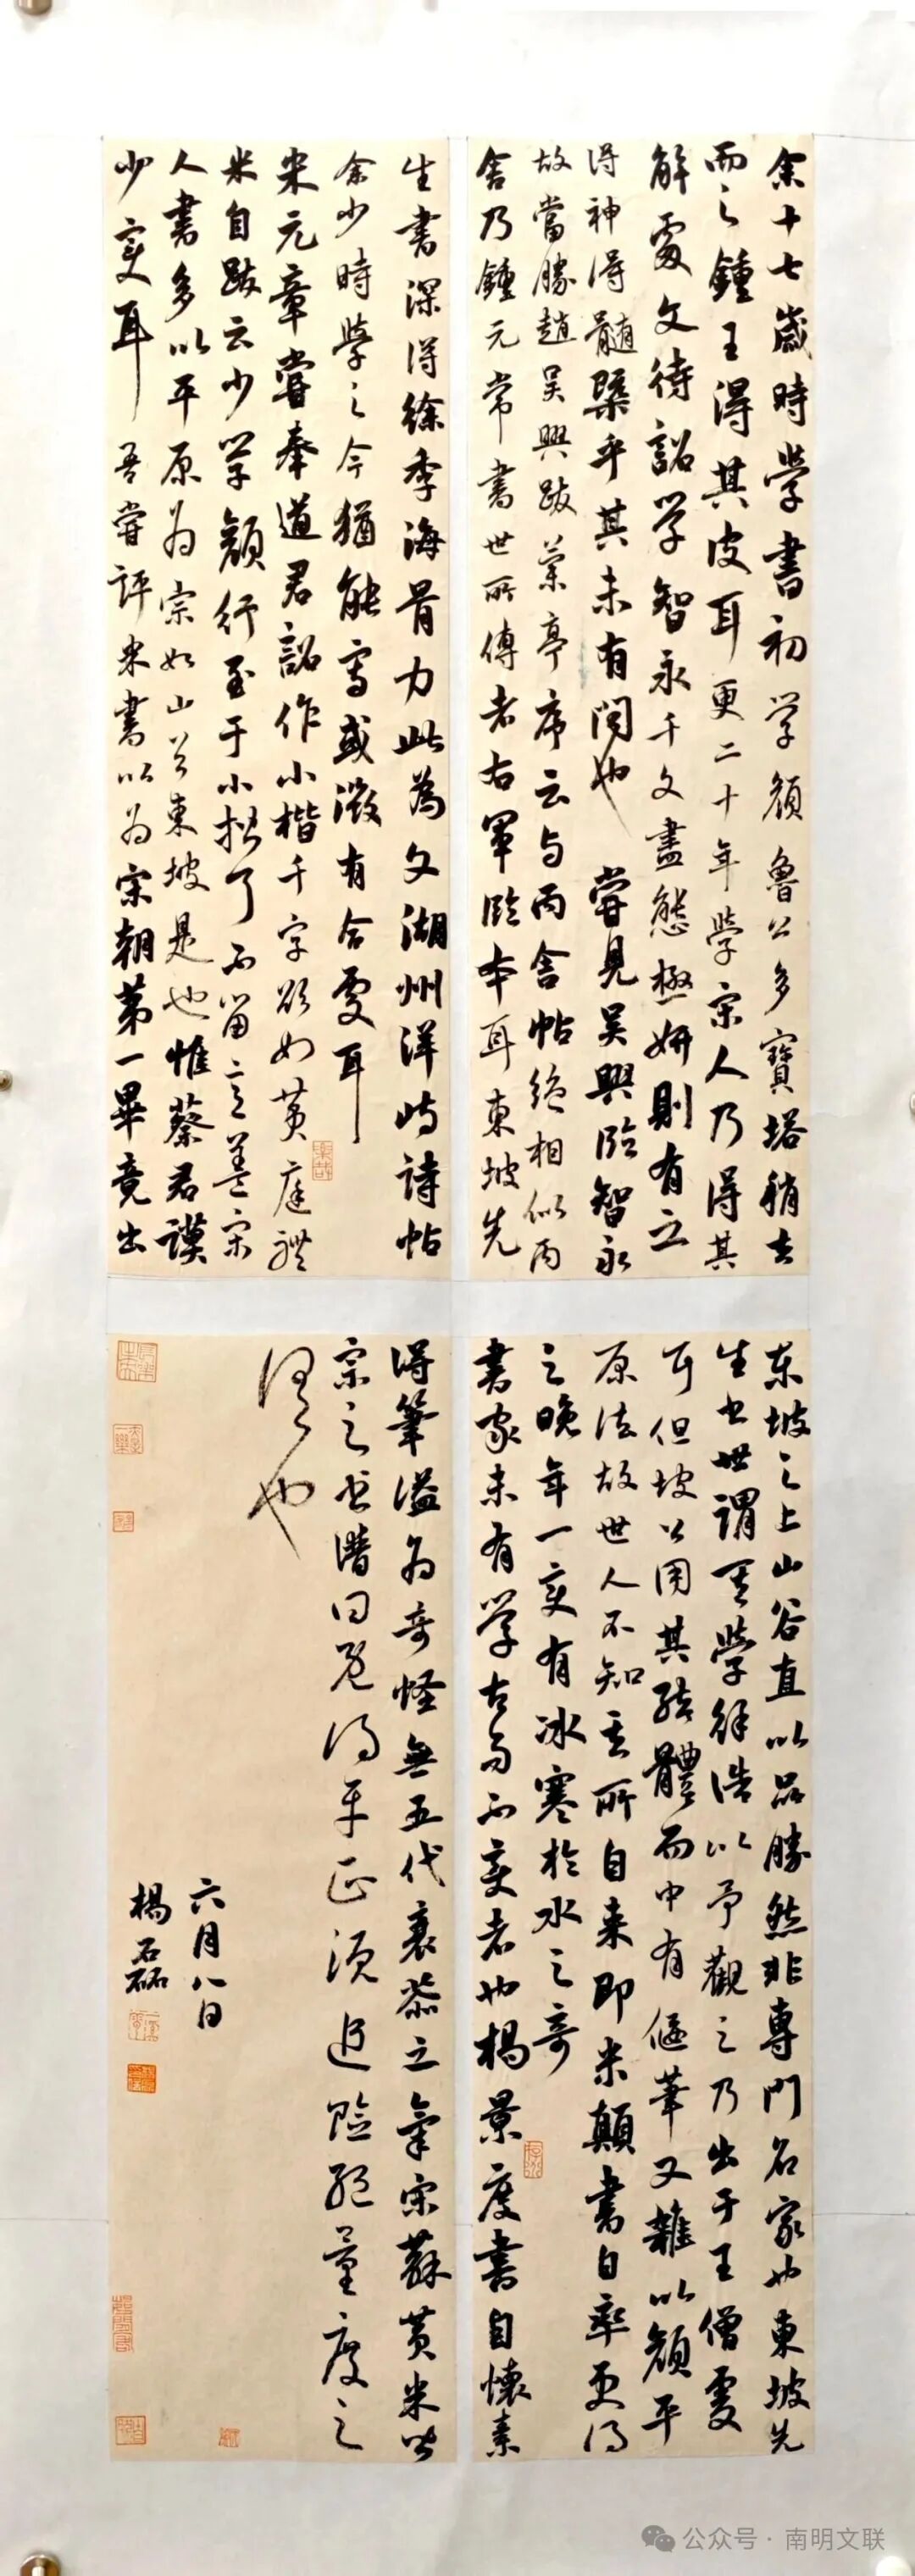 余十七歲時學書初学顔魯公多寶塔稍去
而之鍾王得其皮耳更二十年學宋人乃得其
解處文待詔学智永千文盡態極妍則有之
得神得髓槩乎其未有聞也 嘗見吴興臨智永
故當勝趙吴興跋蘭亭序云与丙舍帖絶相似丙
舍乃鍾元常書世所傳者右軍臨本耳東坡先
生書深得徐季海骨力此為文湖州洋嶼詩帖
余少時學之今猶能寫或微有合處耳
米元章嘗奉道君詔作小楷千字欲如黄庭體
米自跋云少学顔行至于小楷了不留意蓋宋
人書多以平原为宗如山谷東坡是也惟蔡君謨
少變耳 吾嘗評米書以为宋朝第一畢竟出
東坡之上山谷直以品勝然非專門名家也東坡先
生书世謂其學徐浩以予觀之乃出于王僧虔
耳但坡公用其結體而中有偃筆又雜以顔平
原法故世人不知其所自来即米顛書自率更得
之晚年一变有冰寒於水之奇
書家未有学古而不变者也楊景度書自懷素
得筆溢为奇怪無五代衰薾之氣宋蘇黄米皆
宗之书譜曰既得平正須追險絶量度之
得也
六月八日
楊石磊
公众号·南明文联